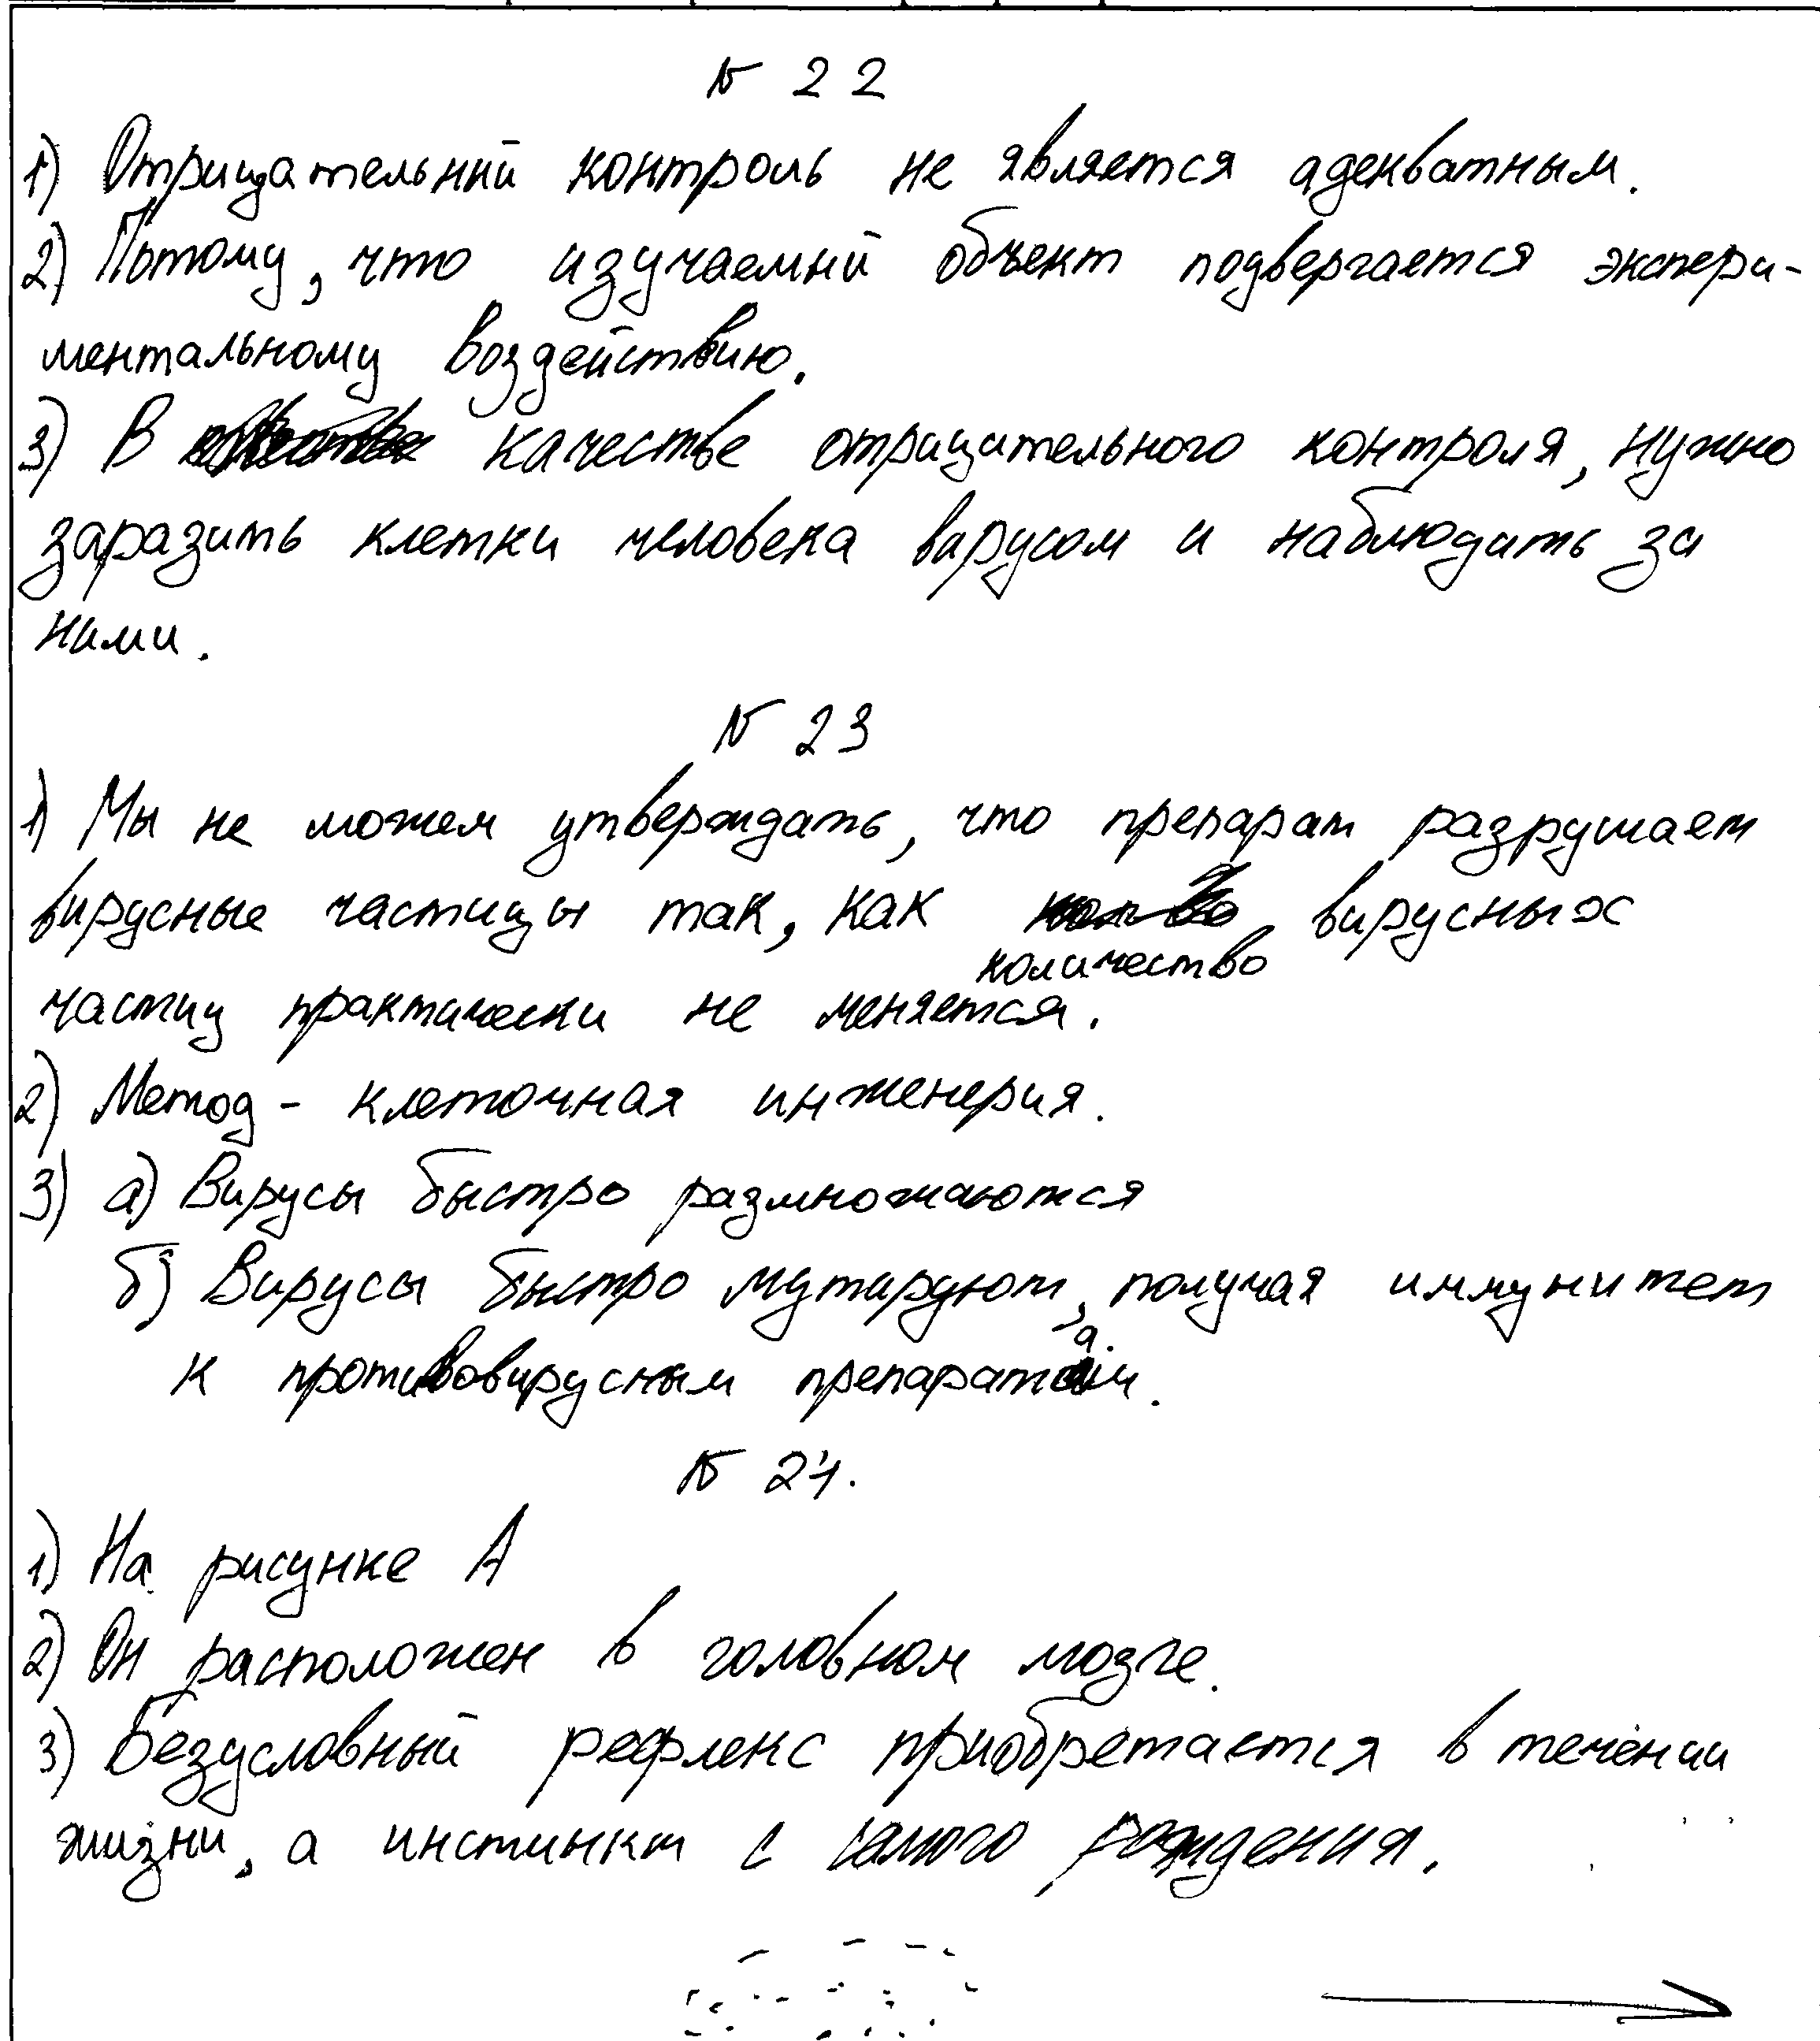 № 22
1) Отрицательный контроль не является адекватным.
2) Потому, что изучаемый объект подвергается экспери-
ментальному воздействию.
3) В качестве отрицительного контроля, нужно
заразить клетки человека вирусом и наблюдать за
ними.
№ 23
1) Мы не можем утверждать, что препарат разрушает
вирусные частицы так, как количество вирусных
частиц практически не меняется.
2) Метод - клеточная инженерия.
3) а) Вирусы быстро размножаются
б) Вирусы быстро мутируют, получая иммунитет
к противовирусным препаратам.
№ 24.
1) На рисунке А
2) Он расположен в головном мозге.
3) Безусловный рефлекс приобретается в течении
жизни, а инстинкт с самого рождения.